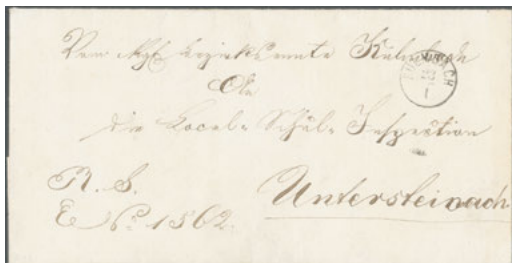 Vom Kgl. Bezirksamte Kulmbach
KULMBACH
22
1
An
die Local-Schul-Inspection
R. S.
E No. 1562.
Untersteinach